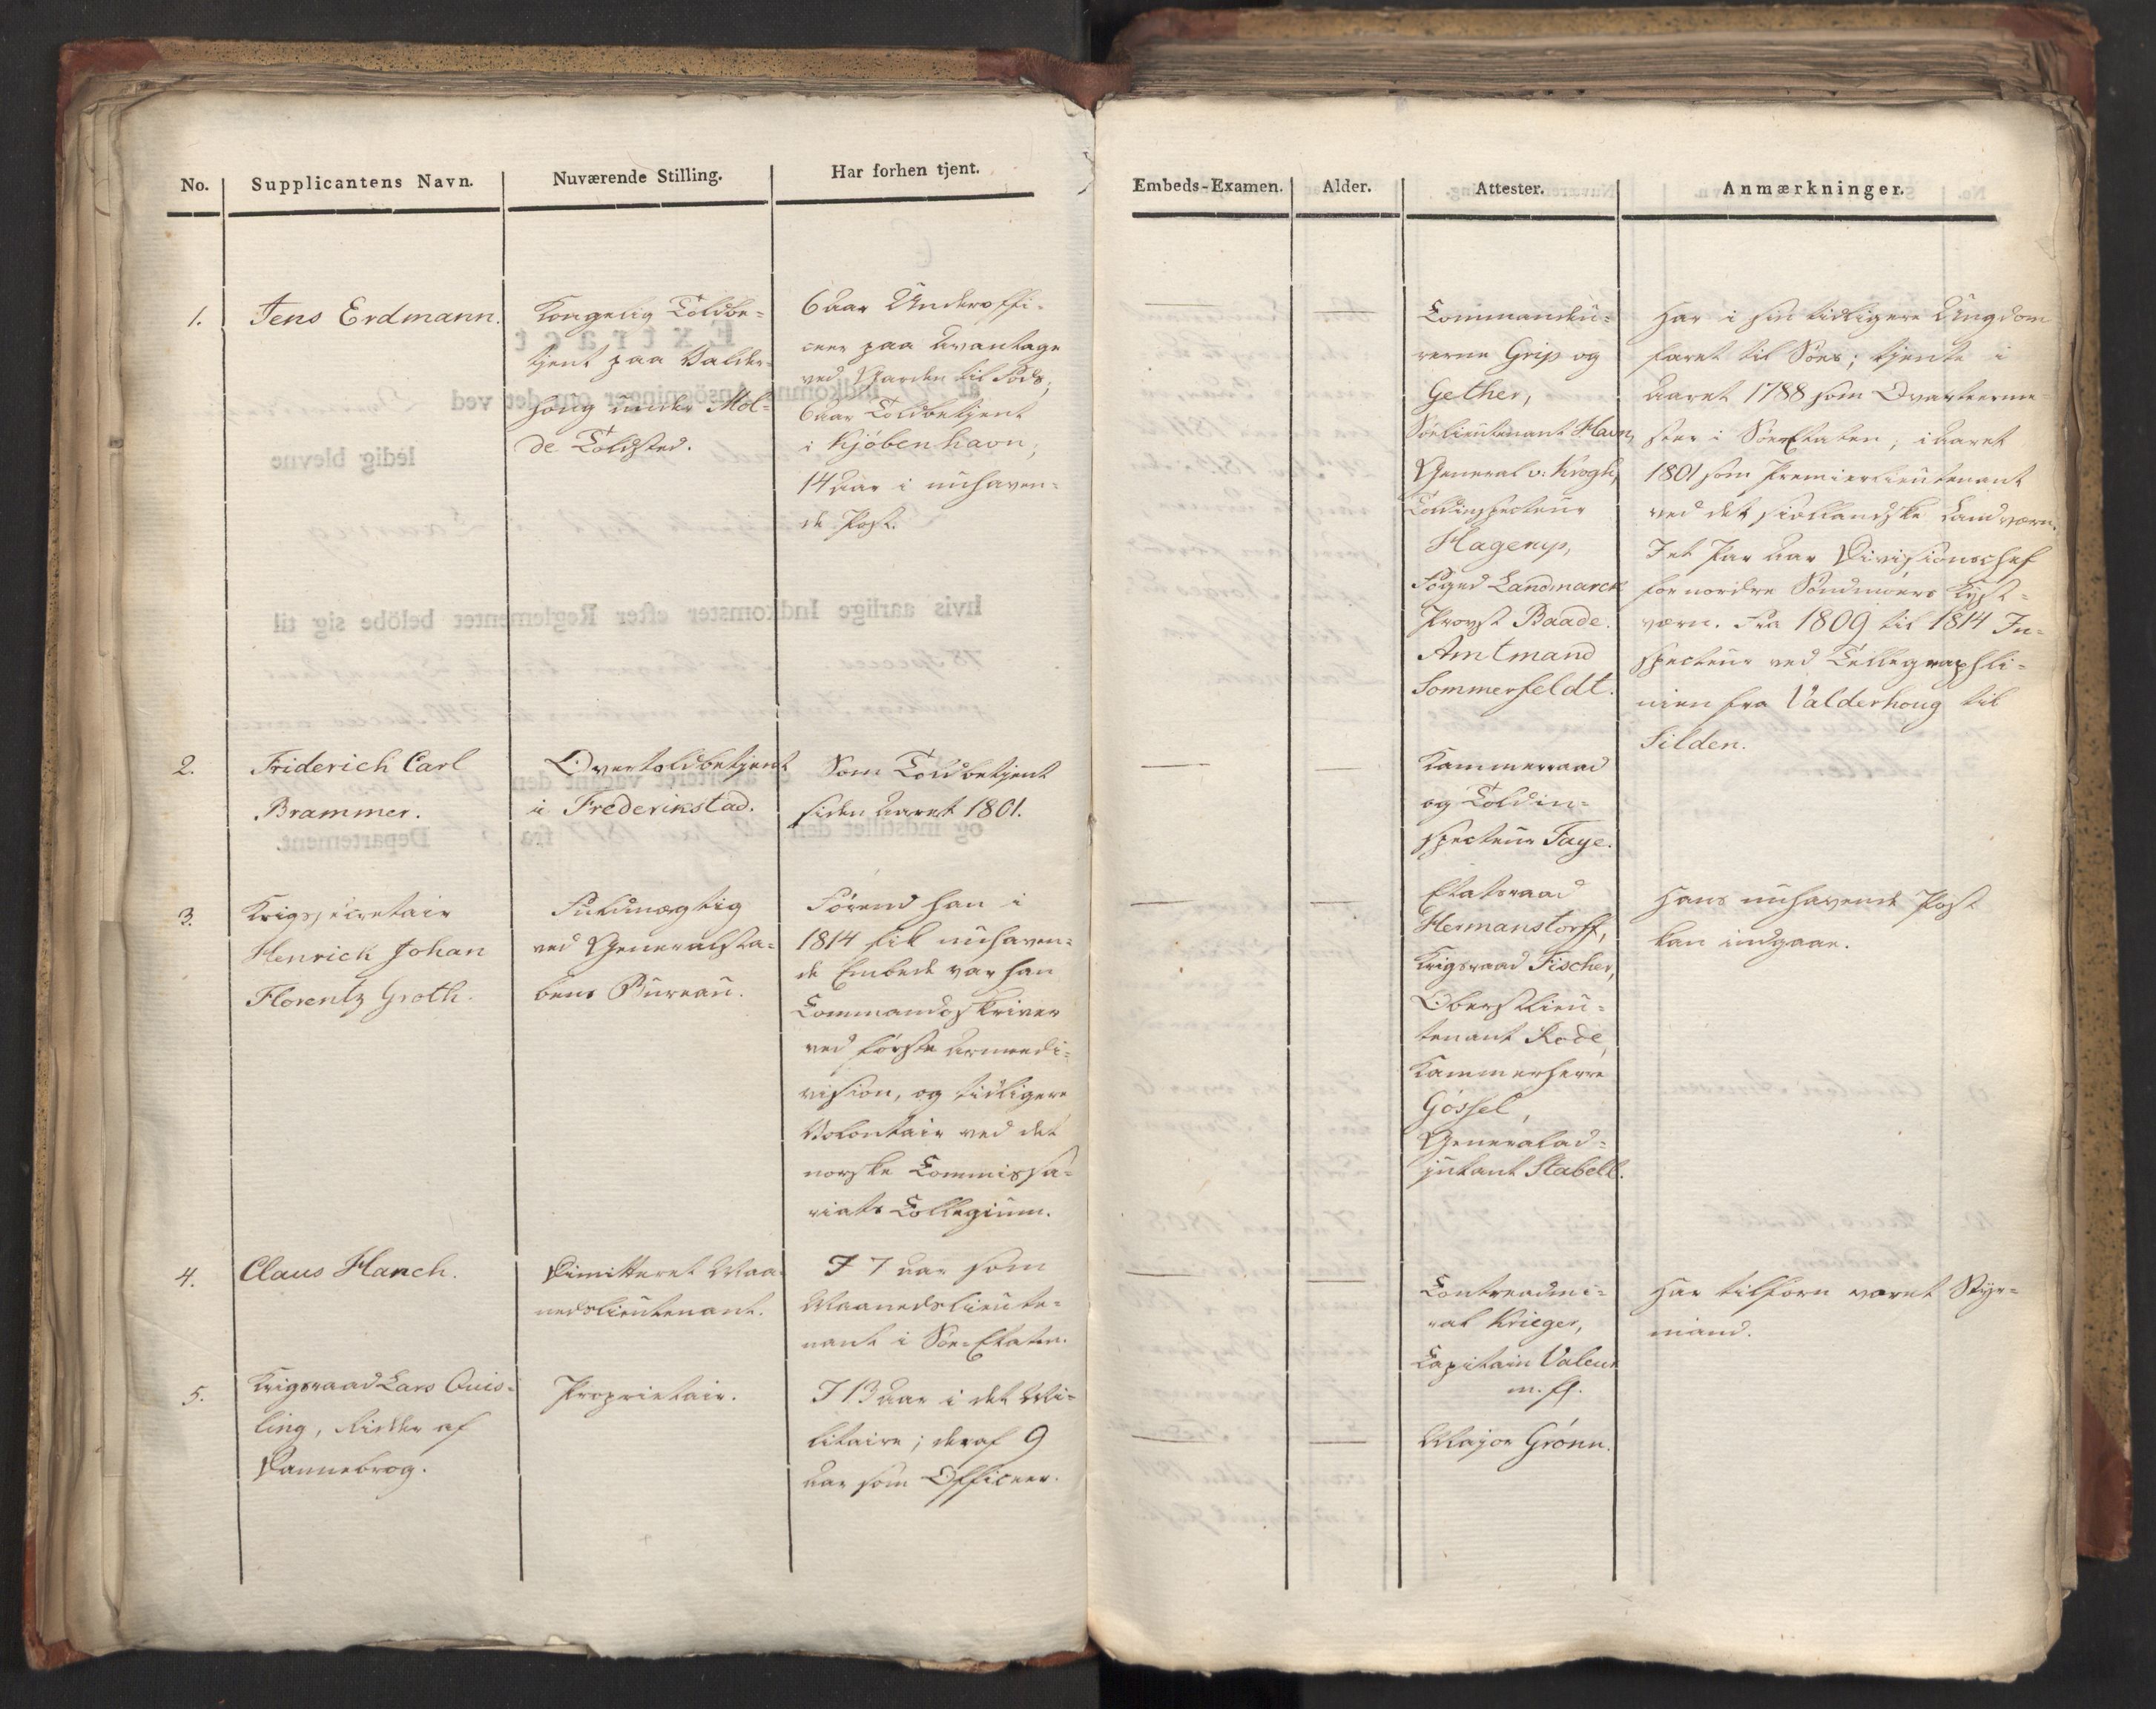 No.
Supplicantens Navn.
Nuværende Stilling.
Har forhen tjent.
Embeds-Examen.
Alder.
Attester.
Anmærkninger.
1.
Jens Erdmann.
Kongelig Toldbe=
tjent paa Valder=
houg under Mol=
de Toldsted.
6 Aar Underoffi=
ceer paa Avantage
ved Garden til Fods;
6 Aar Toldbetjent
i Kjöbenhavn;
14 Aar i nuhaven=
de Post.
—
—
Commandeu=
rerne Grip og
Gether,
Sölieutenant Havn,
General v: Krogh,
Toldinspecteur
Hagerup,
Foged Landmarck
Provst Baade.
Amtmand
Sommerfeldt.
Har i sin tidligere Ungdom
faret til Söes; tjente i
Aaret 1788 som Qvarteerme=
ster i Söe Etaten; i Aaret
1801 som Premierlieutenant
ved det siellandske Landværn.
I et Par Aar Divisionschef
for nordre Söndmöers Kyst=
værn. Fra 1809 til 1814 In=
specteur ved Tellegraphli=
nien fra Valderhoug til
Silden.
2.
Friderich Carl
Brammer.
Overtoldbetjent
i Frederikstad.
Som Toldbetjent
siden Aaret 1801.
—
—
Kammerraad
og Toldin=
specteur Faye.
3.
Krigssecretair
Henrich Johan
Florentz Groth.
Fuldmægtig
ved Generalsta=
bens Bureau.
Förend han i
1814 fik nuhaven=
de Embede var han
Commandoskriver
ved förste Armeedi=
vision, og tidligere
Volontair ved det
norske Commissa=
riats Collegium.
—
—
Etatsraad
Hermanstorff,
Krigsraad Fischer,
Oberstlieu=
tenant Rode,
Kammerherre
Gössel,
Generalad=
jutant Stabell.
Hans nuhavende Post
kan indgaae.
4.
Claus Hanch.
Dimitteret Maa=
nedslieutenant.
I 7 Aar som
Maanedslieute=
nant i Söe-Etaten.
—
—
Contreadmi=
ral Krieger,
Capitain Valeur
m. fl.
Har tilforn været Styr=
mand.
5.
Krigsraad Lars Quis=
ling, Ridder af
Dannebrog.
Proprietair.
I 13 Aar i det Mi=
litaire; deraf 9
Aar som Officeer.
—
—
Major Grönn.